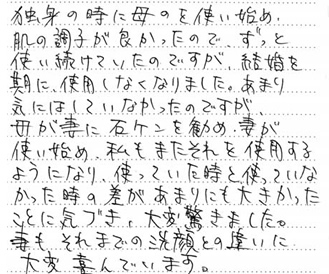 独身の時に母のを使い始め、
肌の調子が良かったので、ずっと
使い続けていたのですが、結婚を
期に、使用しなくなりました。あまり
気にはしていなかったのですが、
母が妻に石ケンを勧め、妻が
使い始め、私もまたそれを使用する
ようになり、使っていた時と使っていな
かった時の差があまりにも大きかった
ことに気づき、大変驚きました。
妻も、それまでの洗顔との違いに
大変喜んでいます。